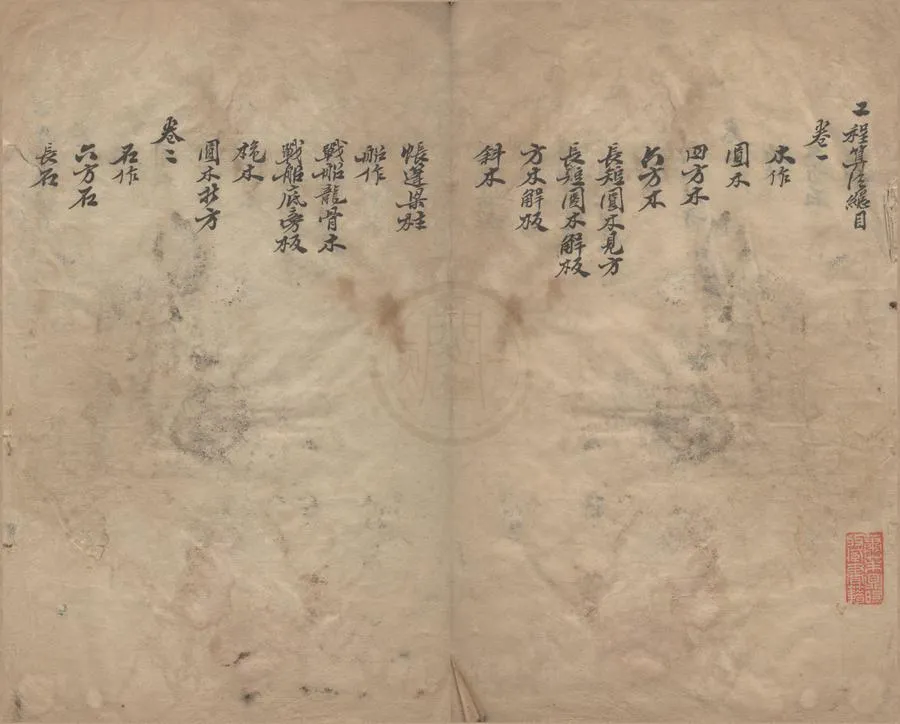 工程算法總目
卷一
木作
圓木
四方木
六方木
長短圓木見方
長短圓木解板
方木解板
斜木
帳逢梁柱
船作
戰船龍骨木
戰船底旁板
桅木
圓木折方
卷二
石作
六方石
長石